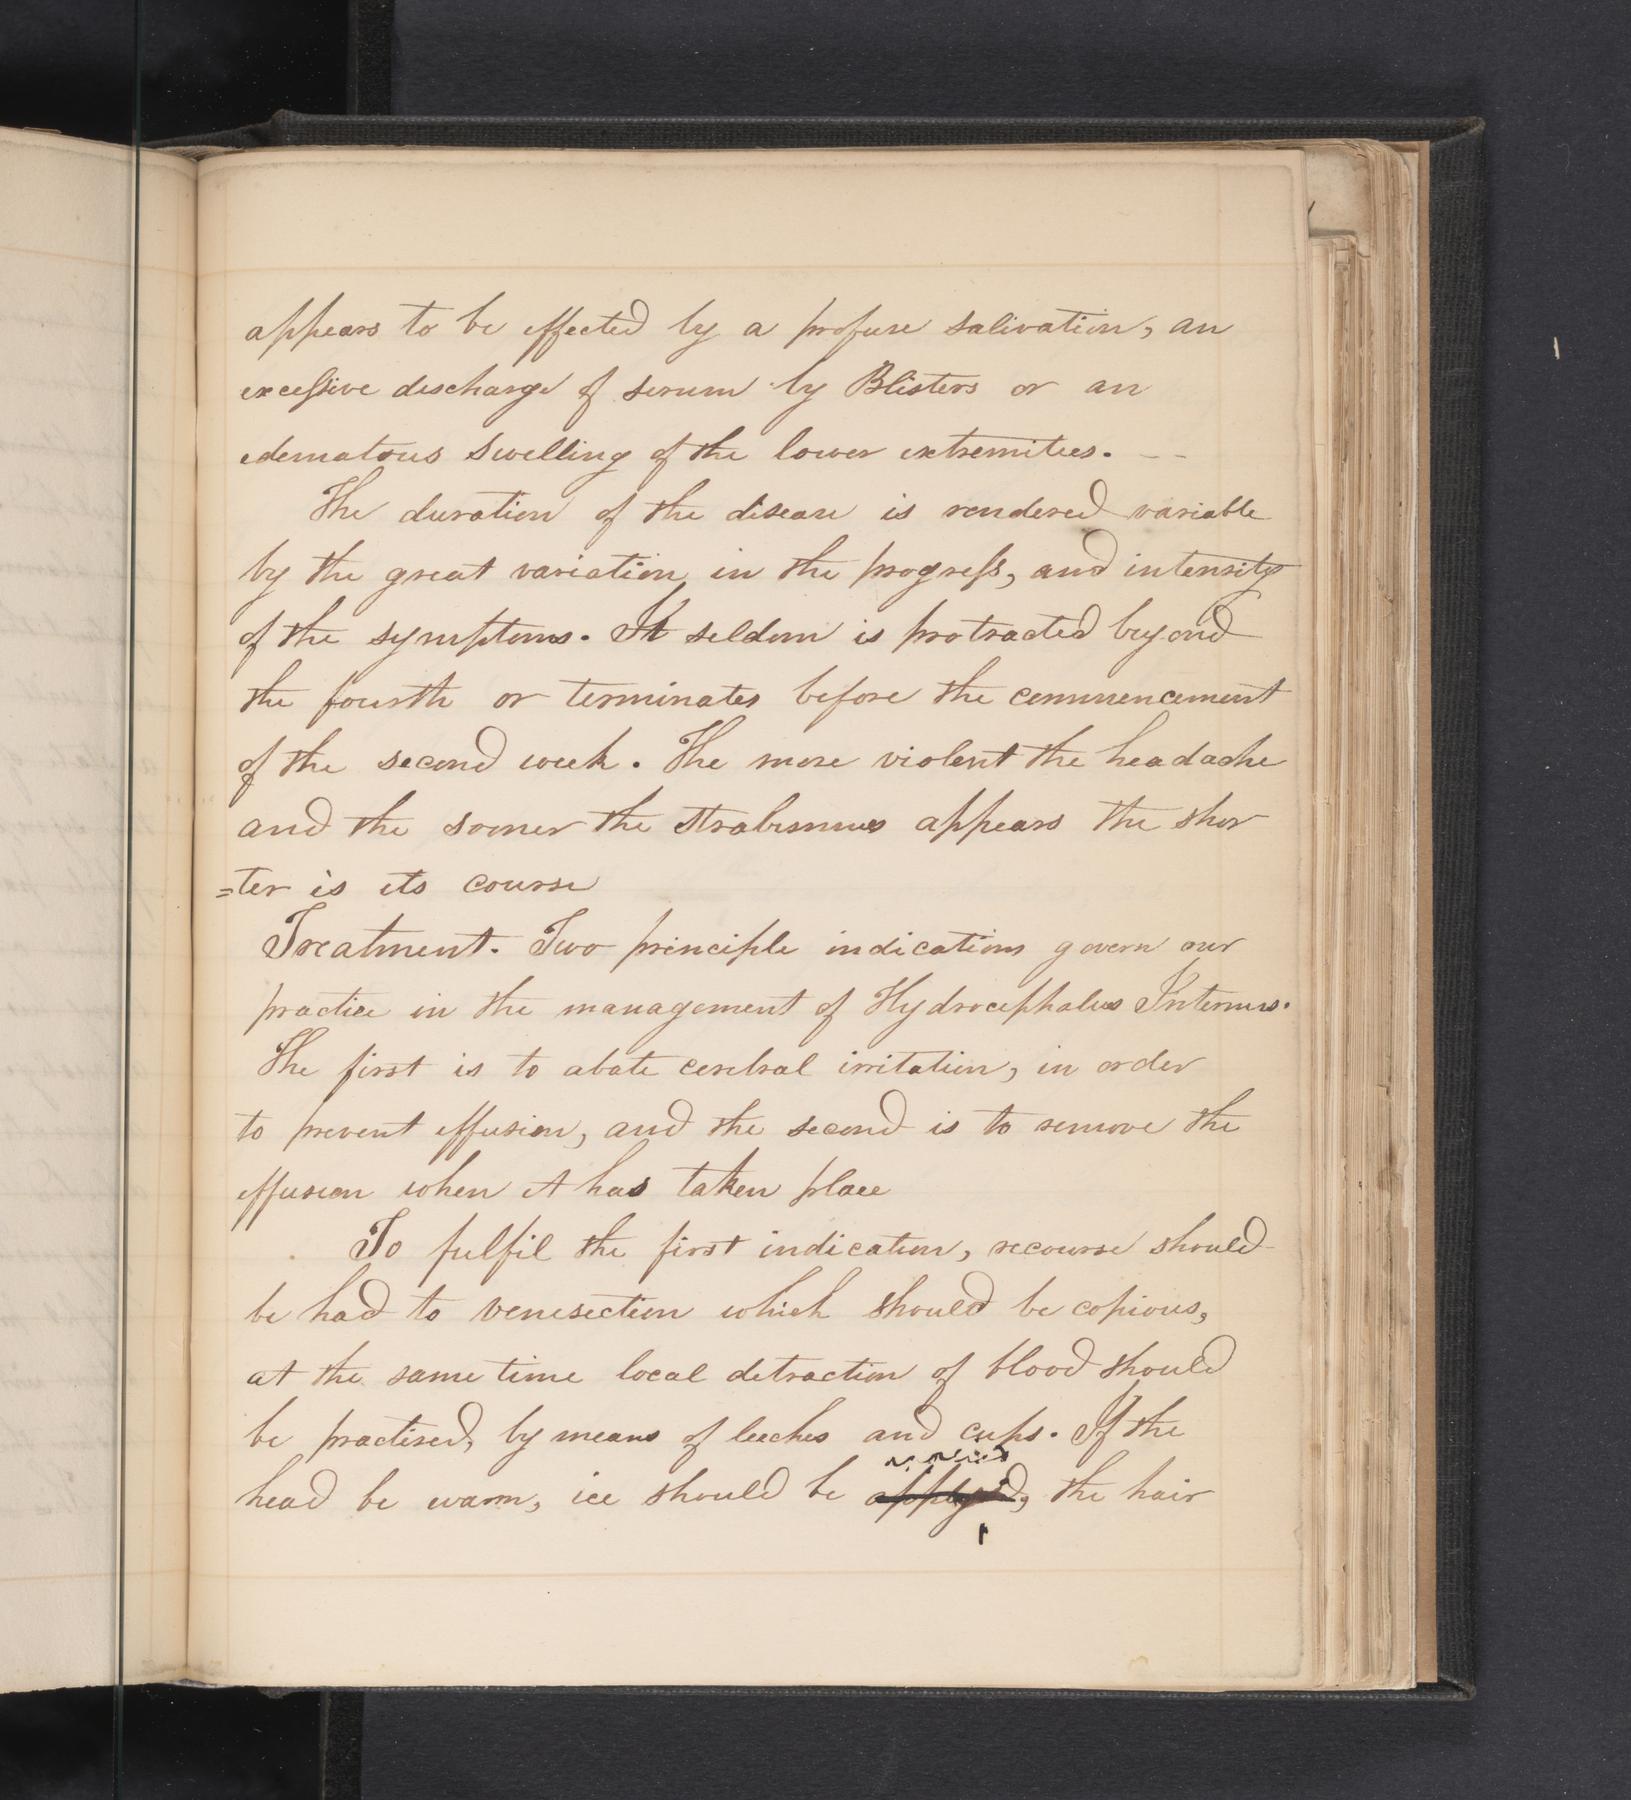 appears to be effected by a profuse salivation, an
excessive discharge of serum by Blisters or an
edematous swelling of the lower extremities. - -
The duration of the disease is rendered variable
by the great variation in the progress, and intensity
of the symptoms. It seldom is protracted beyond
the fourth or terminates before the commencement
of the second week. The more violent the headache
and the sooner the strabismus appears the shor
=ter is its course
Treatment. Two principle indications govern our
practice in the management of Hydrocephalus Internus.
The first is to abate cerebral irritation, in order
to prevent effusion, and the second is to remove the
effusion when it has taken place
To fulfil the first indication, recourse should
be had to venesection which should be copious,
at the same time local detraction of blood should
be practised, by means of leeches and cups. If the
head be warm, ice should be applyed, the hair